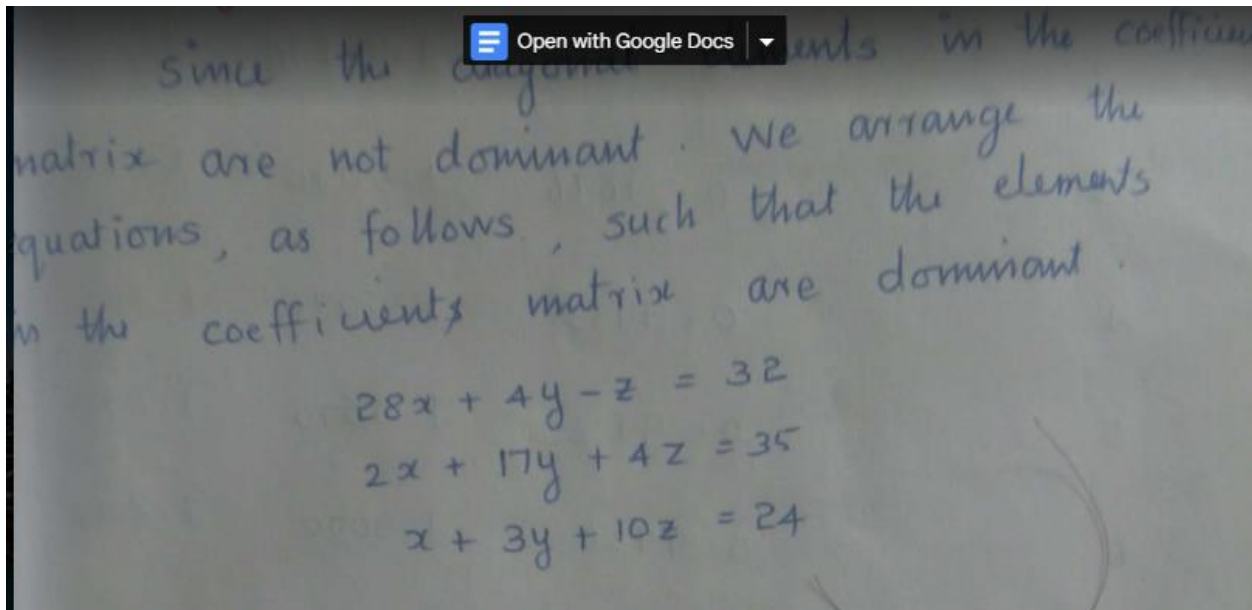 Open with Google Docs
since the diagonal elements in the
matrix are not dominant. We arrange the
quations, as follows, such that the elements
in the coefficients matrix are dominant.
28x + 4y - z = 32
2x + 17y + 4z = 35
x + 3y + 10z = 24